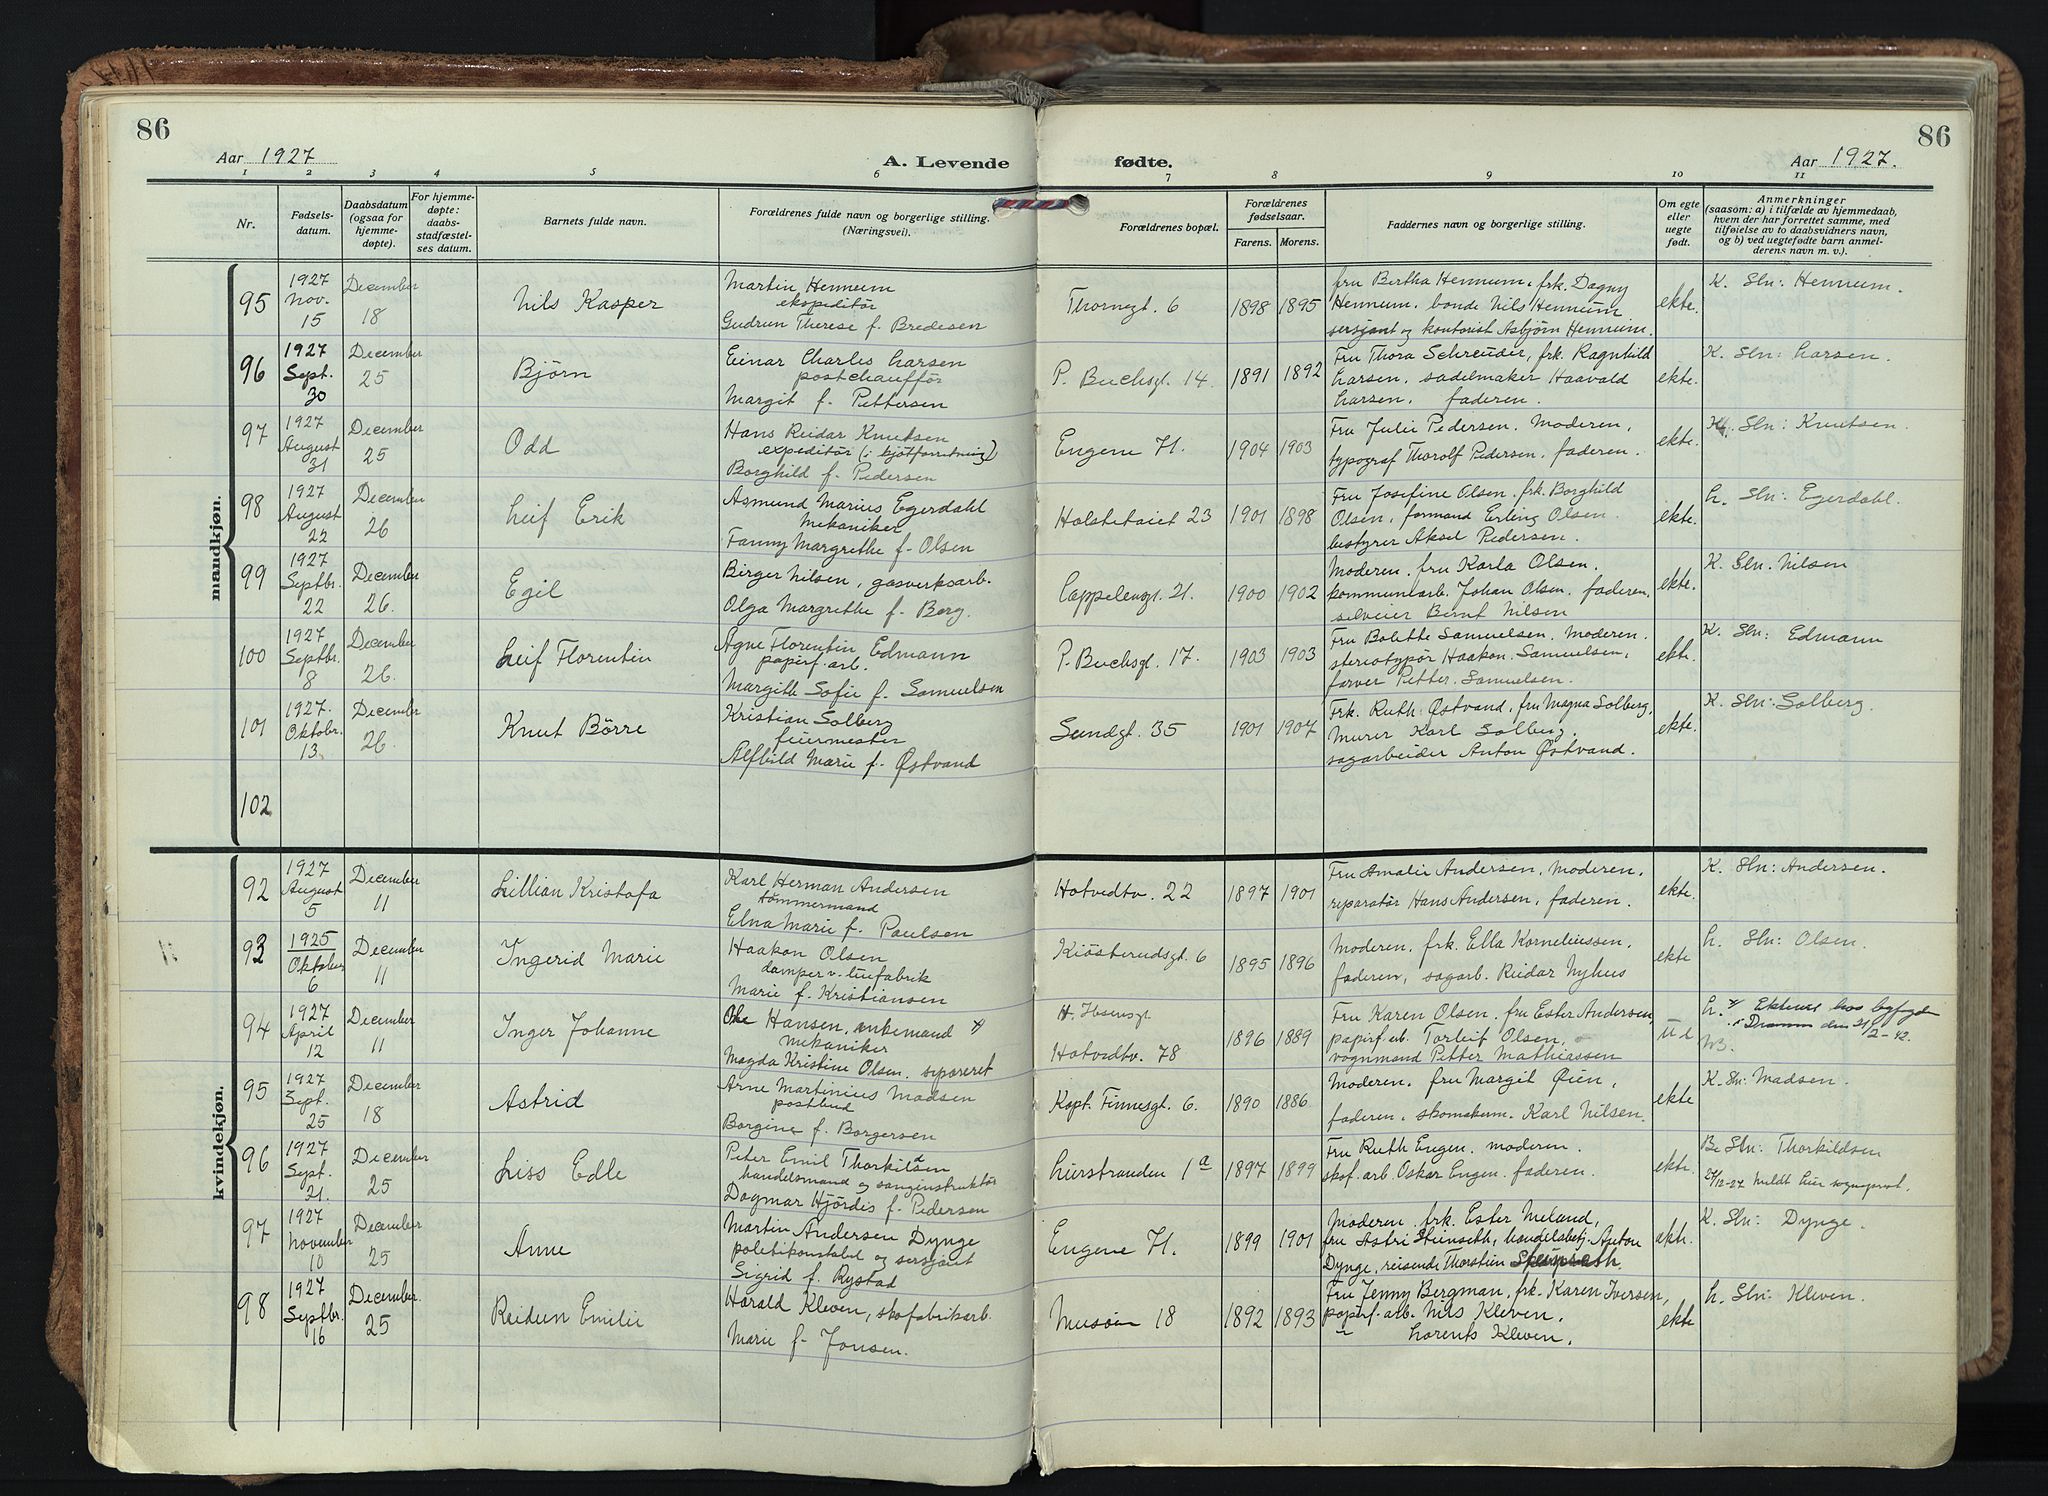 86
86
Aar 1927
A. Levende
fødte.
Aar 1927.
1 2 3 4 5 6 7 8 9 10 11
Nr.
Fødsels-
datum.
Daabsdatum
(ogsaa for
hjemme-
døpte).
For hjemme-
døpte:
daabs-
stadfæstel-
ses datum.
Barnets fulde navn.
Forældrenes fulde navn og borgerlige stilling.
(Næringsvei).
Forældrenes bopæl.
Forældrenes
fødselsaar.
Farens. Morens.
Faddernes navn og borgerlige stilling.
Om egte
eller
uegte
født.
Anmerkninger
(saasom: a) i tilfælde av hjemmedaab,
hvem der har forrettet samme, med
tilføielse av to daabsvidners navn,
og b) ved uegtefødte barn anmel-
derens navn m. v.).
mandkjøn.
95
1927
Nov.
15
December
18
Nils Kasper
Martin Hennum
ekspeditör
Gudrun Therese f. Bredesen
Thornegt. 6
1898 1895
fru Bertha Hennum, frk. Dagny
Hennum, bonde Nils Hennum
sersjant og kontorist Asbjörn Hennum.
ekte.
K. Sln: Hennum.
96
1927
Sept.
30
December
25
Björn
Einar Charles Larsen
postchaufför
Margit f. Pettersen
P. Buchsgt. 14.
1891 1892
Fru Thora Schreuder, frk. Ragnhild
Larsen, sadelmaker Haavald
Larsen, faderen.
ekte.
K. Sln: Larsen.
97
1927
August
31
December
25
Odd
Hans Reidar Knutsen
expeditör (i kjötforretning)
Borghild f. Pedersen
Engene 71.
1904 1903
Fru Julie Pedersen. Moderen,
typograf Thorolf Pedersen, faderen.
ekte.
K. Sln: Knutsen.
98
1927
August
22
December
26
Leif Erik
Asmund Marius Egerdahl
Mekaniker
Fanny Margrethe f. Olsen
Holstetaiet 23
1901 1898
Fru Josefine Olsen, frk. Borghild
Olsen, formand Erling Olsen.
bestyrer Aksel Pedersen.
ekte.
L. Sln: Egerdahl.
99
1927
Septbr.
22
December
26.
Egil
Birger Nilsen, gasverksarb.
Olga Margrethe f. Berg.
Cappelensgt. 21.
1900 1902
Moderen, fru Karla Olsen.
kommunearb. Johan Olsen, faderen,
Bernt Nilsen
ekte.
K. Sln. Nilsen
100
1927
Septbr.
8
December
26.
Leif Florentin
Agne Florentin Edmann
papirf. arb.
Margith Sofie f. Samuelsen
P. Buchsgt. 17.
1903 1903
Fru Bolette Samuelsen, Moderen.
stereotypör Haakon Samuelsen,
farver Petter Samuelsen.
ekte.
K. Sln: Edmann
101
1927.
Oktobr.
13.
December
26.
Knut Börre
Kristian Solberg
feiermester
Alfhild Marie f. Østvand
Sundgt. 35
1901 1907
Frk. Ruth Østvand, fru Magna Solberg,
Murer Karl Solberg.
sagarbeider Anton Østvand.
ekte.
K. Sln: Solberg.
102
kvindekjøn.
92
1927
August
5
December
11
Lillian Kristofa
Karl Herman Andersen
tömmermand
Elna Marie f. Paulsen
Hotvedtv. 22
1897 1901
Fru Amalie Andersen, Moderen,
reparatör Hans Andersen, faderen.
ekte.
K. Sln: Andersen.
93
1925
Oktober
6
December
11
Ingerid Marie
Haakon Olsen
damper v. luefabrik
Marie f. Kristiansen
Kiösterudsgt. 6
1895 1896
Moderen, frk. Ella Korneliussen,
faderen, sagarb. Reidar Nyhus
ekte
L. Sln: Olsen.
94
1927
April
12
December
11
Inger Johanne
Ole Hansen, enkemand
mekaniker
Magda Kristine Olsen, separeret
H. Ibsensgt
Hotvedtv. 78
1896 1889
Fru Karen Olsen, fru Ester Andersen,
papirf. arb. Torleif Olsen,
vognmand Petter Mathiassen
u e
L. Ektevie hos byfogden
i Dramm den 21/2-42.
95
1927
Sept.
25
December
18
Astrid
Arne Martinius Madsen
postbud
Borgine f. Borgersen
Kapt. Finnesgt. 6.
1890 1886
Moderen, fru Margit Øien,
faderen, skomakerm. Karl Nilsen.
ekte
K. Sln: Madsen.
96
1927
Sept.
21.
December
25
Liss Edle
Peter Emil Thorkildsen
handelsmand og sanginstruktör
Dagmar Hjördis f. Pedersen
Lierstranden 1 a
1897 1899
Fru Ruth Engen. moderen.
skof. arb Oskar Engen. faderen.
ekte.
Be Sln: Thorkildsen
29/12-27 meldt Lier sogneprest.
97
1927
November
10
December
25
Anne
Martin Andersen Dynge
politikonstabel og sersjant
Sigrid f. Rystad
Engene 71.
1899 1901
Moderen, frk. Ester Meland,
fru Astri Steinseth, handelsbetj. Anton
Dynge, reisende Thorstein
ekte.
K. Sln: Dynge.
98
1927
Septbr.
16
December.
25
Reidun Emilie
Harald Kleven, skofabrikarb.
Marie f. Jonsen.
Musöien 18
1892 1893
Fru Jenny Bergman, frk. Karen Iversen,
papirf. arb. Nils Kleven.
" Lorents Kleven.
ekte
L. Sln: Kleven.